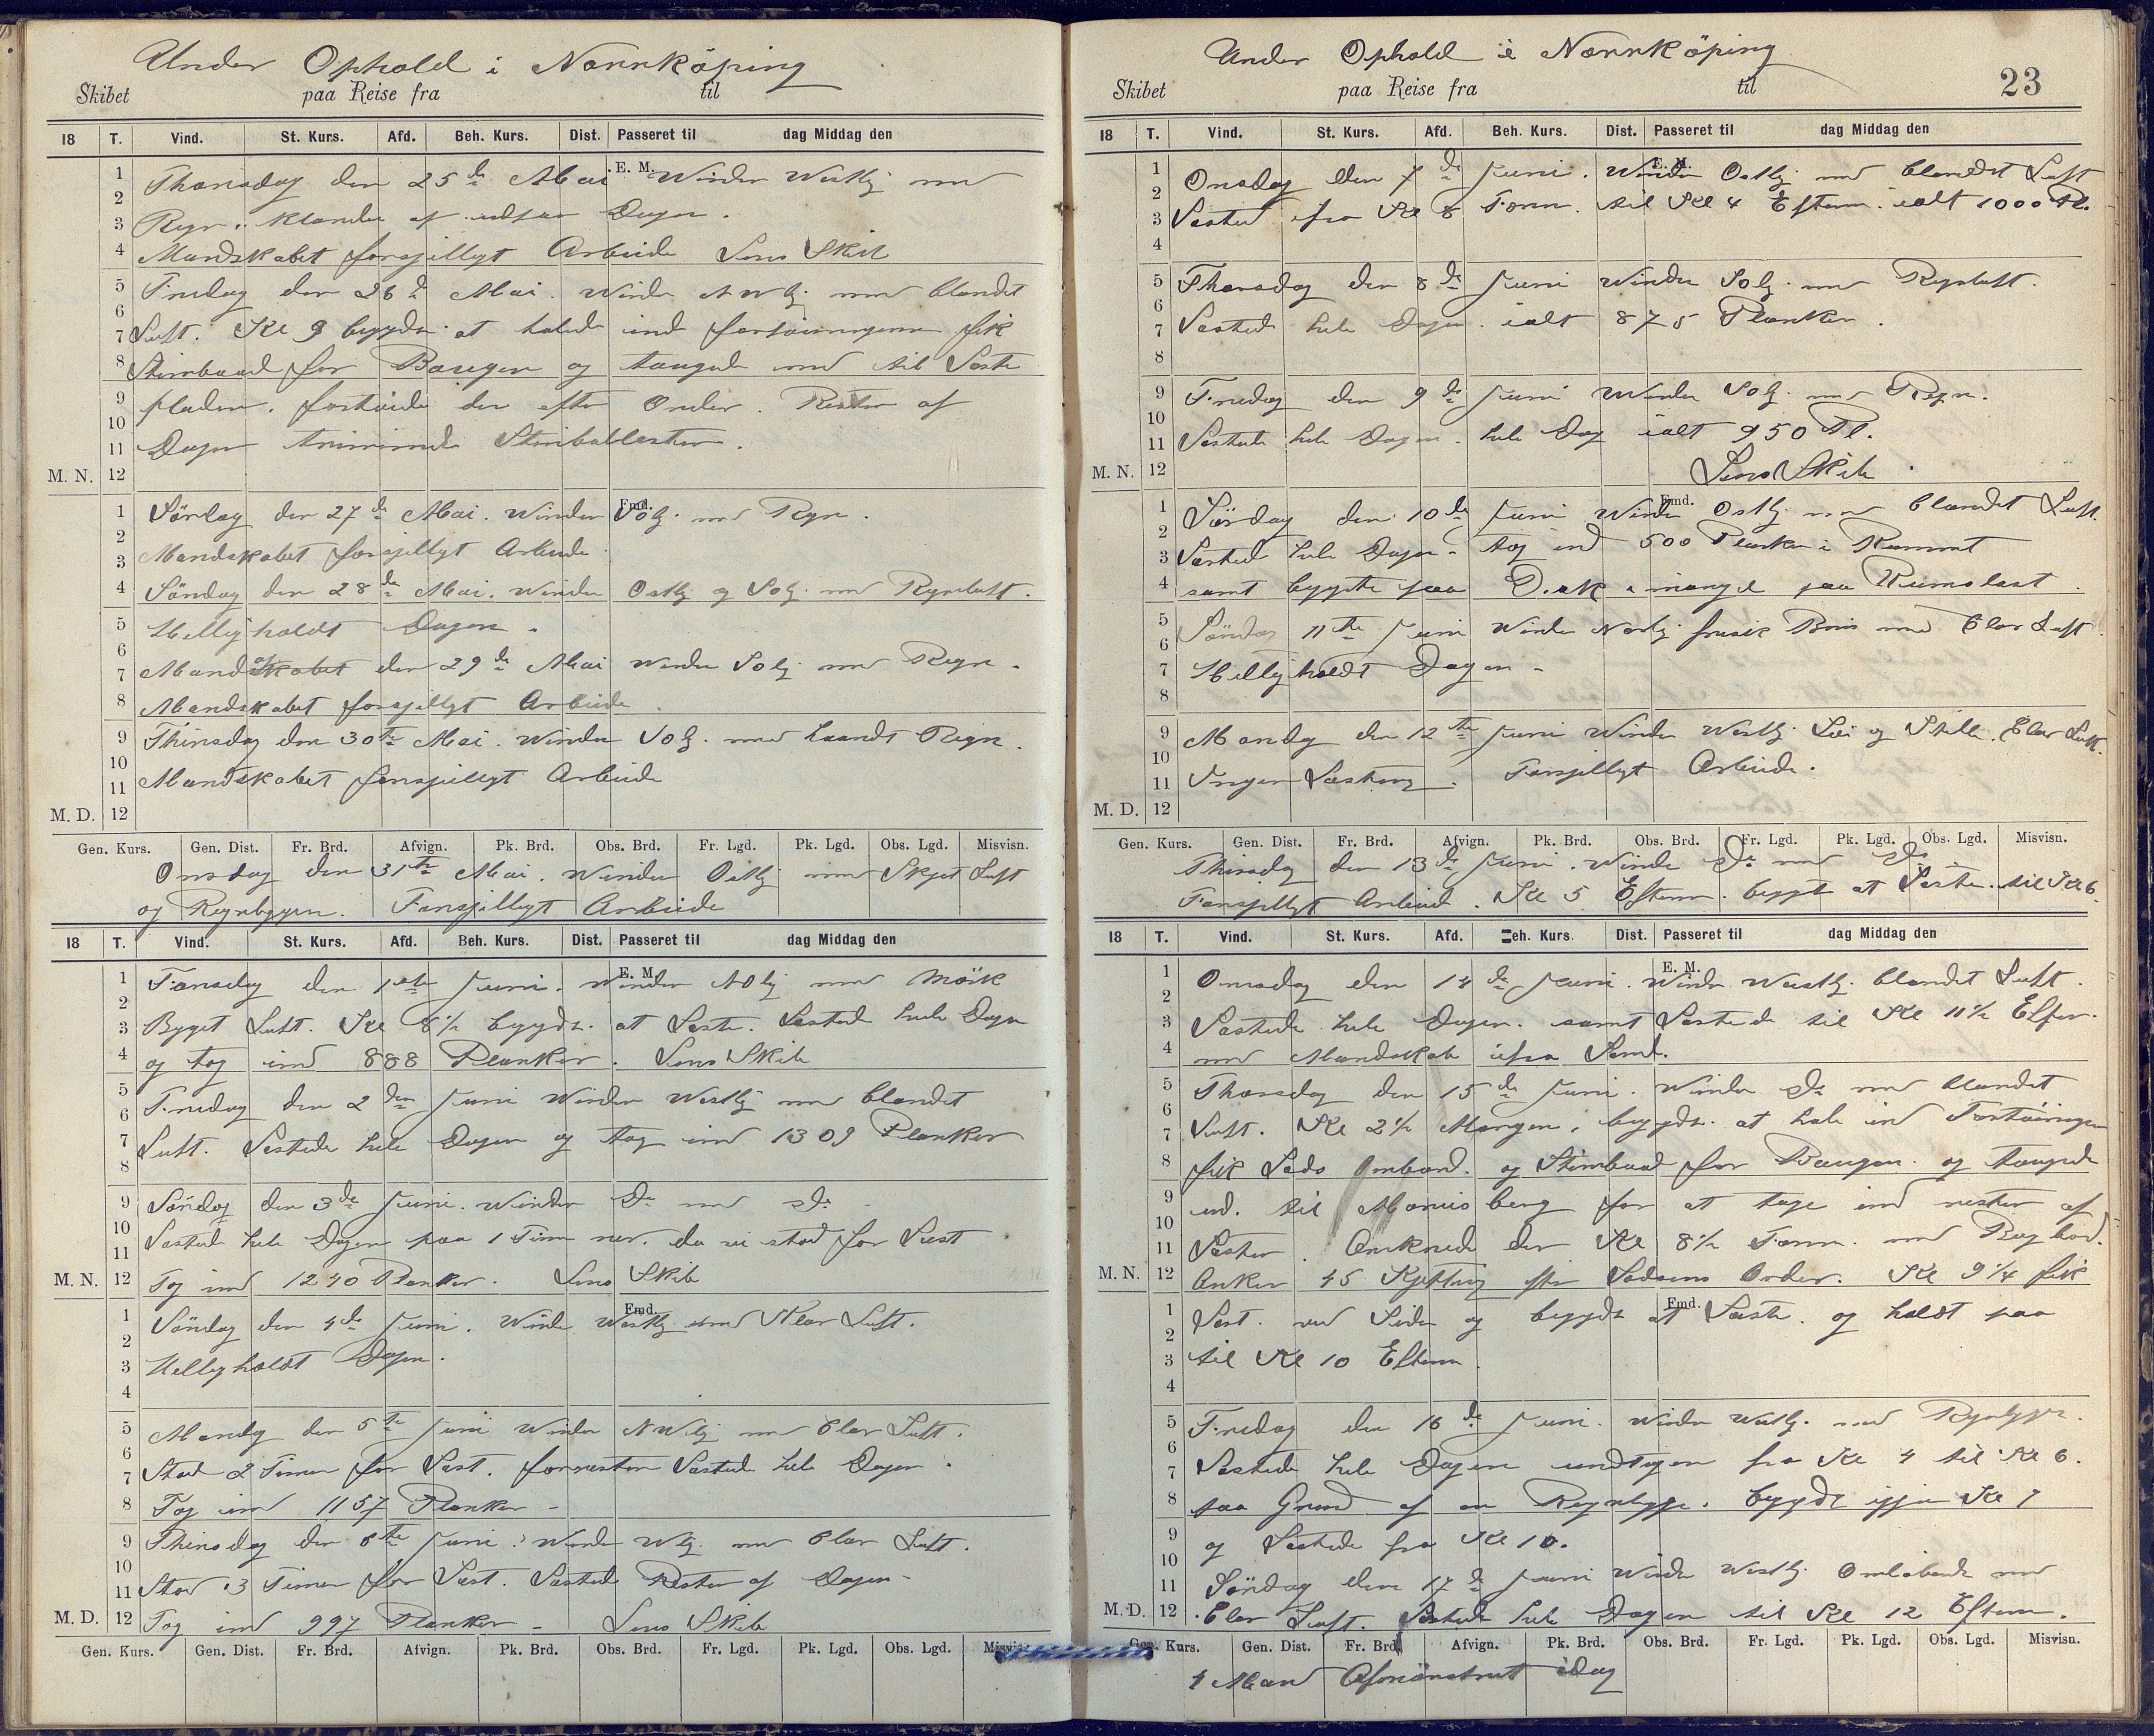 Under Ophold i Norrköping
Skibet paa Reise fra til
18 T. Vind. St. Kurs. Afd. Beh. Kurs. Dist. Passeret til dag Middag den
E. M.
1 Thorsdag den 25de Mai Winden Westlig med
2
3 Regn. af Dagen.
4 Mandskabet forsjelligt Arbeide Lens Skib
5 Fredag den 26de Mai. Winden NWlig med blandet
6
7 Luft. Kl 9 begyndte at halede ind fortöiningerne fik
8 Stimbaad for Bougen og taugede ned til Laste
9 pladen. fortöiede der efter Order. Resten af
10
11 Dagen
M. N. 12
Fmd.
1 Lörlag den 27de Mai. Winden Solig med Regn.
2
3 Mandskabet forsjelligt Arbeide
4 Söndag den 28de Mai. Winden Ostlig og Solig med Regnluft.
5 Helligholdt Dagen.
6
7 Mandag den 29de Mai Winden Solig med Regn.
8 Mandskabet forsjelligt Arbeide.
9 Thirsdag den 30te Mai. Winden Solig. med Regn.
10
11 Mandskabet forsjelligt Arbeide
M. D. 12
Gen. Kurs. Gen. Dist. Fr. Brd. Afvign. Pk. Brd. Obs. Brd. Fr. Lgd. Pk. Lgd. Obs. Lgd. Misvisn.
Onsdag den 31te Mai. Winden Ostlig med Skyet Luft
og Regnbyger. Forsjelligt Arbeide
18 T. Vind. St. Kurs. Afd. Beh. Kurs. Dist. Passeret til dag Middag den
E. M.
1 Torsdag den 1ste Juni. Winden NOlig med Mörk
2
3 Byget Luft. Kl 6½ begyndte at Laste. Lastede hele Dagen
4 og tog ind 888 Planker. Lens Skib
5
6 Fredag den 2den Juni Winden Westlig med blandet
7 Luft. Lastede hele Dagen og tog ind 1309 Planker
8
9 Söndag den 3de Juni. Winden Do med Do.
10
11 Lasted hele Dagen paa 1 Time ner. da vi stod for Last
M. N. 12 Tog ind 1240 Planker. Lens Skib
Fmd.
1 Söndag den 4de Juni. Winden Westlig med Klar Luft.
2
3 Helligholdt Dagen.
4
5 Mandag den 5te Juni Winden NWlig med Clar Luft.
6
7 Stod 2 Timer for Last. forresten Lastede hele Dagen.
8 Tog ind 1157 Planker
9 Thirsdag den 6te Juni. Winden Wlig med Clar Luft.
10
11 Stod 3 Timer for Last. Lastede Resten af Dagen
M. D. 12 Tog ind 997 Planker Lens Skib
Gen. Kurs. Gen. Dist. Fr. Brd. Afvign. Pk. Brd. Obs. Brd. Fr. Lgd. Pk. Lgd. Obs. Lgd.
Under Ophold i Norrköping
23
Skibet paa Reise fra til
18 T. Vind. St. Kurs. Afd. Beh. Kurs. Dist. Passeret til dag Middag den
E. M.
1 Onsdag den 7de Juni. Winden Ostlig med blandet Luft
2
3 Lastede fra Kl 6 Form. til Kl 4 Efterm. ialt 1000 Pl.
4
5 Thorsdag den 8de Juni Winden Solig med Regnluft.
6
7 Lastede hele Dagen. ialt 875 Planker.
8
9 Fredag den 9de Juni Winden Solig med Regn.
10
11 Lastede hele Dagen. hele Dag ialt 950 Pl.
M. N. 12 Lens Skib.
Fmd.
1 Lördag den 10de Juni Winden Ostlig med blandet Luft.
2
3 Lastede hele Dagen. tog ind 500 Planker i Rummet
4 samt bygte paa Dæk i mangel paa Rumslast.
5
6 Söndag 11te Juni Winden Nordlig frisk Bris med Clar Luft.
7 Helligholdt Dagen
8
9 Mandag den 12te Juni Winden Westlig Löi og Stille. Clar Luft.
10
11 Ingen Lastning. Forsjelligt Arbeide.
M. D. 12
Gen. Kurs. Gen. Dist. Fr. Brd. Afvign. Pk. Brd. Obs. Brd. Fr. Lgd. Pk. Lgd. Obs. Lgd. Misvisn.
Thirsdag den 13de Juni. Winden Do med Do
Forsjelligt Arbeid. Kl 5 Efterm. begyt at Laste. til Kl 6.
18 T. Vind. St. Kurs. Afd. Beh. Kurs. Dist. Passeret til dag Middag den
E. M.
1 Onsdag den 14de Juni. Winden Westlig. blandet Luft.
2
3 Lastede hele Dagen. samt Lastede til Kl 11½ Efter.
4 med Mandskab ifra Land.
5
6 Thorsdag den 15de Juni. Winden Do med blandet
7 Luft. Kl 2½ Morgen. begyndte at hale ind Fortöiningen
8 fik Lods Ombord. og Stimbaad for Bougen og taugede
9 ud. til Marnis berg for at tage ind resten af
10
11 Lasten. Ankrede der Kl 8½ Form. med Bagbord.
M. N. 12 Anker 45 Kjetting efter Lodsens Order. Kl 9¼ fik
Fmd.
1 Last. ved Siden og begyndte at Laste. og holdt paa
2
3 til Kl 10 Efterm.
4
5 Fredag den 16de Juni. Winden Westlig. med Regnbyger.
6
7 Lastede hele Dagen undtagen fra Kl 4 til Kl 6.
8 paa Grund af en Regnbyge. begyndte igjen Kl 7
9 og Lastede fra Kl 10.
10
11 Söndag den 17de Juni Winden Westlig Omlöbende med
M. D. 12 Clar Luft. Lastede hele Dagen til Kl 12 Efterm.
Gen. Kurs. Gen. Dist. Fr. Brd. Afvign. Pk. Brd. Obs. Brd. Fr. Lgd. Pk. Lgd. Obs. Lgd. Misvisn.
4 Mand Afmönstret idag